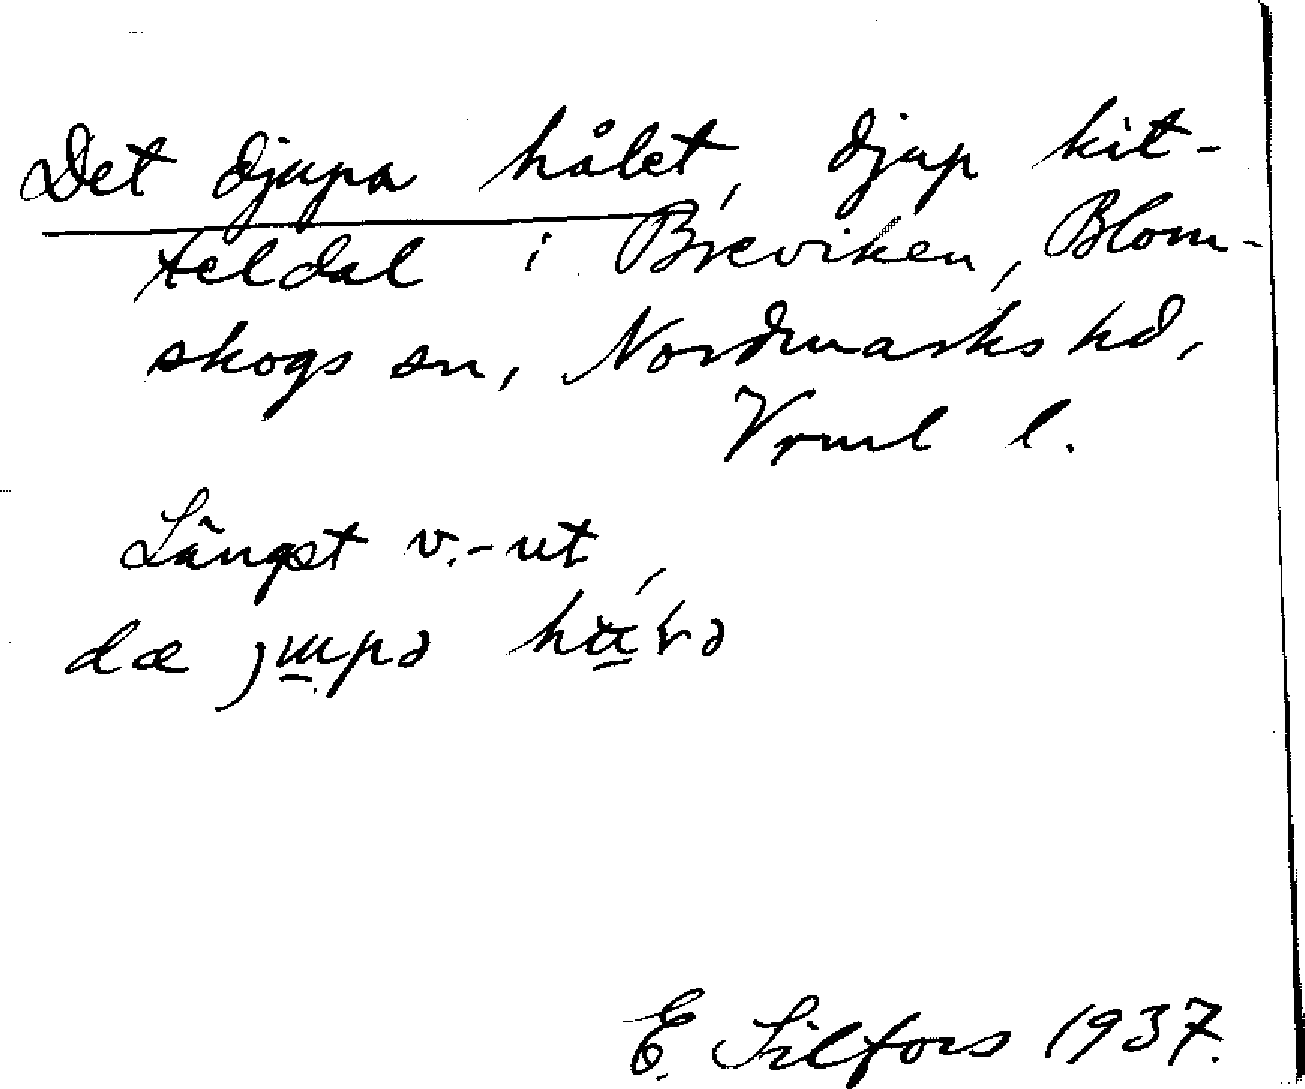 Det djupa hålet, djup kit-
teldal i Breviken, Blom-
skogs sn, Nordmarks hd,
Vrml l.
Längst v.-ut
dæ
E. Silfors 1937.